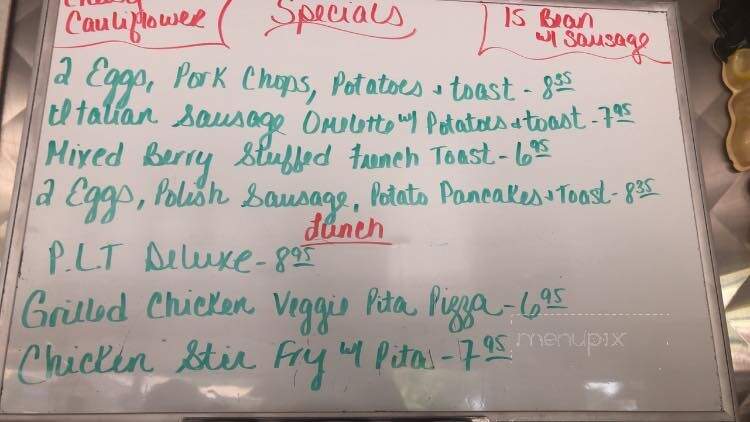 Cheesy
Cauliflower
Specials
15 Bean
w/ Sausage
2 Eggs, Pork Chops, Potatoes + toast - 8.35
Italian Sausage Omelette w/ Potatoes + toast - 7.95
Mixed Berry Stuffed French Toast - 6.95
2 Eggs, Polish Sausage, Potato Pancakes + Toast - 8.35
Lunch
P.L.T Deluxe - 8.95
Grilled Chicken Veggie Pita Pizza - 6.95
Chicken Stir Fry w/ Pita - 7.95
menupix